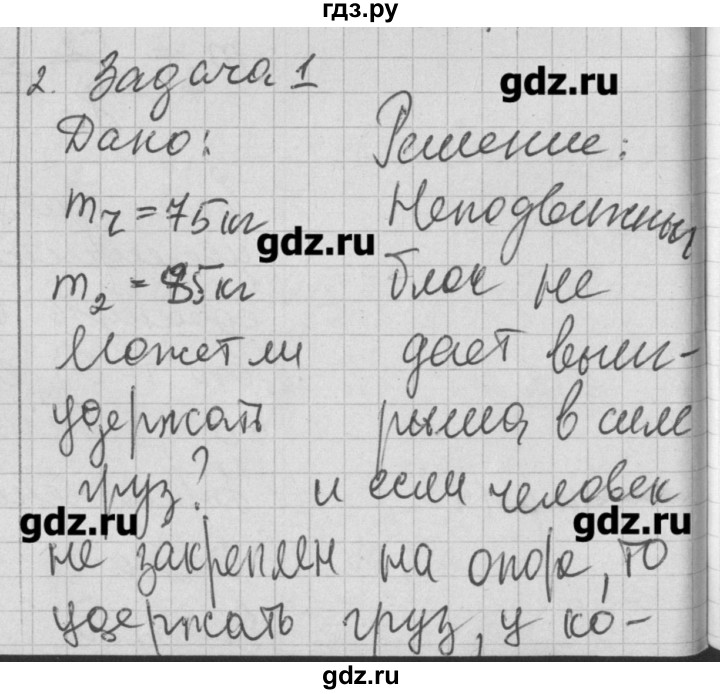 гдз.ру
2. Задача 1
gdz.ru
Дано: Решение:
mч = 75 кг Неподвижный
gdz.ru
m2 = 85 кг блок не
Может ли дает выиг-
удержать рыша в силе
груз? и если человек
gdz.ru gdz.ru
не закреплен на опоре, то
удержать груз, у ко-
gdz.ru